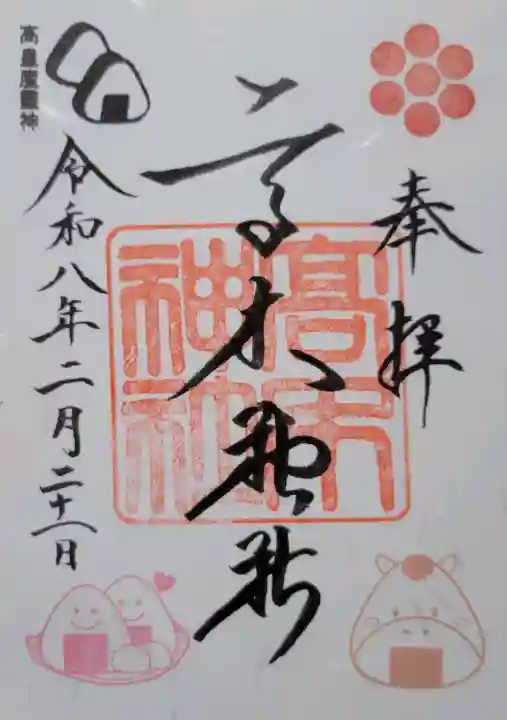 奉拝
高木神社
高木神社
高皇産靈神
令和八年二月二十一日